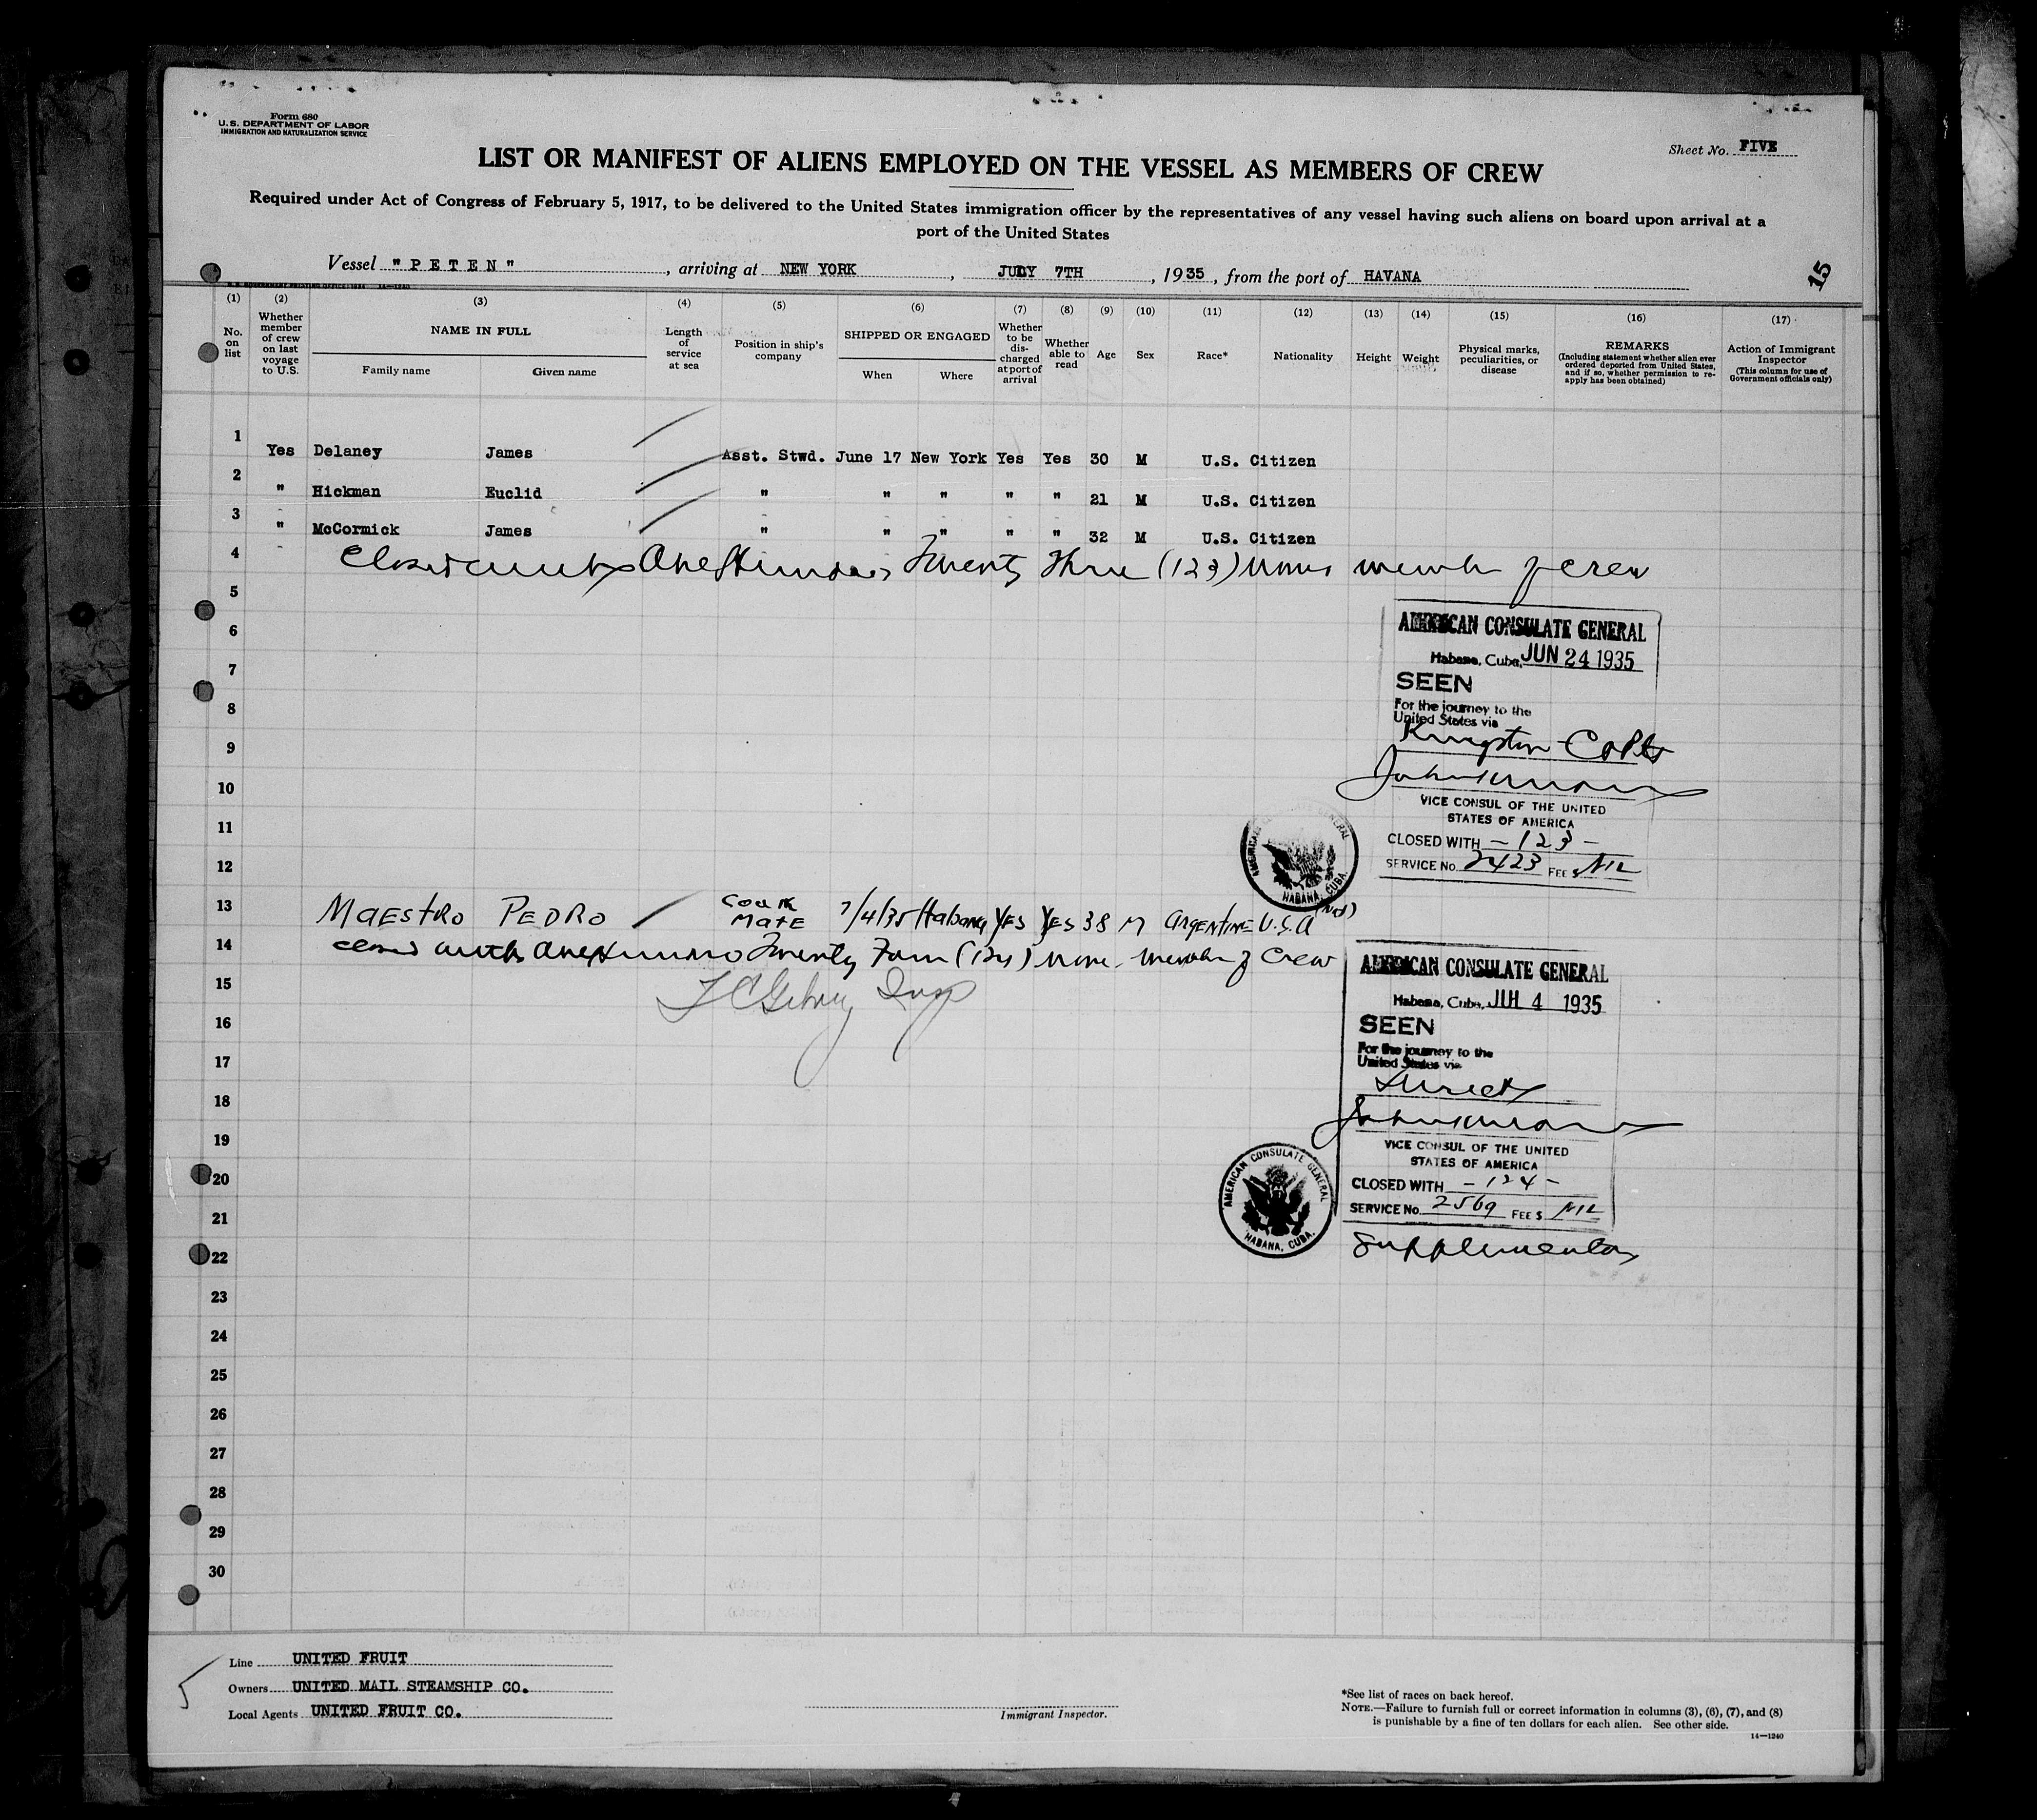 Form 680
U. S. DEPARTMENT OF LABOR
IMMIGRATION AND NATURALIZATION SERVICE
Sheet No. FIVE
LIST OR MANIFEST OF ALIENS EMPLOYED ON THE VESSEL AS MEMBERS OF CREW
Required under Act of Congress of February 5, 1917, to be delivered to the United States immigration officer by the representatives of any vessel having such aliens on board upon arrival at a
port of the United States
Vessel "PETEN", arriving at NEW YORK, JULY 7TH, 1935, from the port of HAVANA
15
(1) (2) (3) (4) (5) (6) (7) (8) (9) (10) (11) (12) (13) (14) (15) (16) (17)
No. on list
Whether member of crew on last voyage to U.S.
NAME IN FULL
Family name Given name
Length of service at sea
Position in ship's company
SHIPPED OR ENGAGED
When Where
Whether to be discharged at port of arrival
Whether able to read
Age
Sex
Race*
Nationality
Height
Weight
Physical marks, peculiarities, or disease
REMARKS
(Including statement whether alien ever ordered deported from United States, and if so, whether permission to reapply has been obtained)
Action of Immigrant Inspector
(This column for use of Government officials only)
1 Yes Delaney James Asst. Stwd. June 17 New York Yes Yes 30 M U.S. Citizen
2 " Hickman Euclid " " " " " 21 M U.S. Citizen
3 " McCormick James " " " " " 32 M U.S. Citizen
4 Closed with One Hundred Twenty Three (123) names member of crew
5
6
7
8
9
10
11
12
AMERICAN CONSULATE GENERAL
Habana, Cuba, JUN 24 1935
SEEN
For the journey to the
United States via
Kingston
VICE CONSUL OF THE UNITED
STATES OF AMERICA
CLOSED WITH -123-
SERVICE No. 2423 FEE $ NIL
AMERICAN CONSULATE GENERAL
HABANA, CUBA.
13 MAESTRO PEDRO Cook Mate 7/4/35 Habana YES YES 38 M Argentine U.S.A
14 closed with One Hundred Twenty Four (124) name member of Crew
15
16
17
18
19
20
21
22
23
24
25
26
27
28
29
30
AMERICAN CONSULATE GENERAL
Habana, Cuba, 4 1935
SEEN
For the journey to the
United States via
Direct
VICE CONSUL OF THE UNITED
STATES OF AMERICA
CLOSED WITH -124-
SERVICE No. 2569 FEE $ NIL
AMERICAN CONSULATE GENERAL
HABANA, CUBA.
Supplemental
Line UNITED FRUIT
Owners UNITED MAIL STEAMSHIP CO.
Local Agents UNITED FRUIT CO.
Immigrant Inspector.
*See list of races on back hereof.
NOTE.—Failure to furnish full or correct information in columns (3), (6), (7), and (8)
is punishable by a fine of ten dollars for each alien. See other side.
14—1240